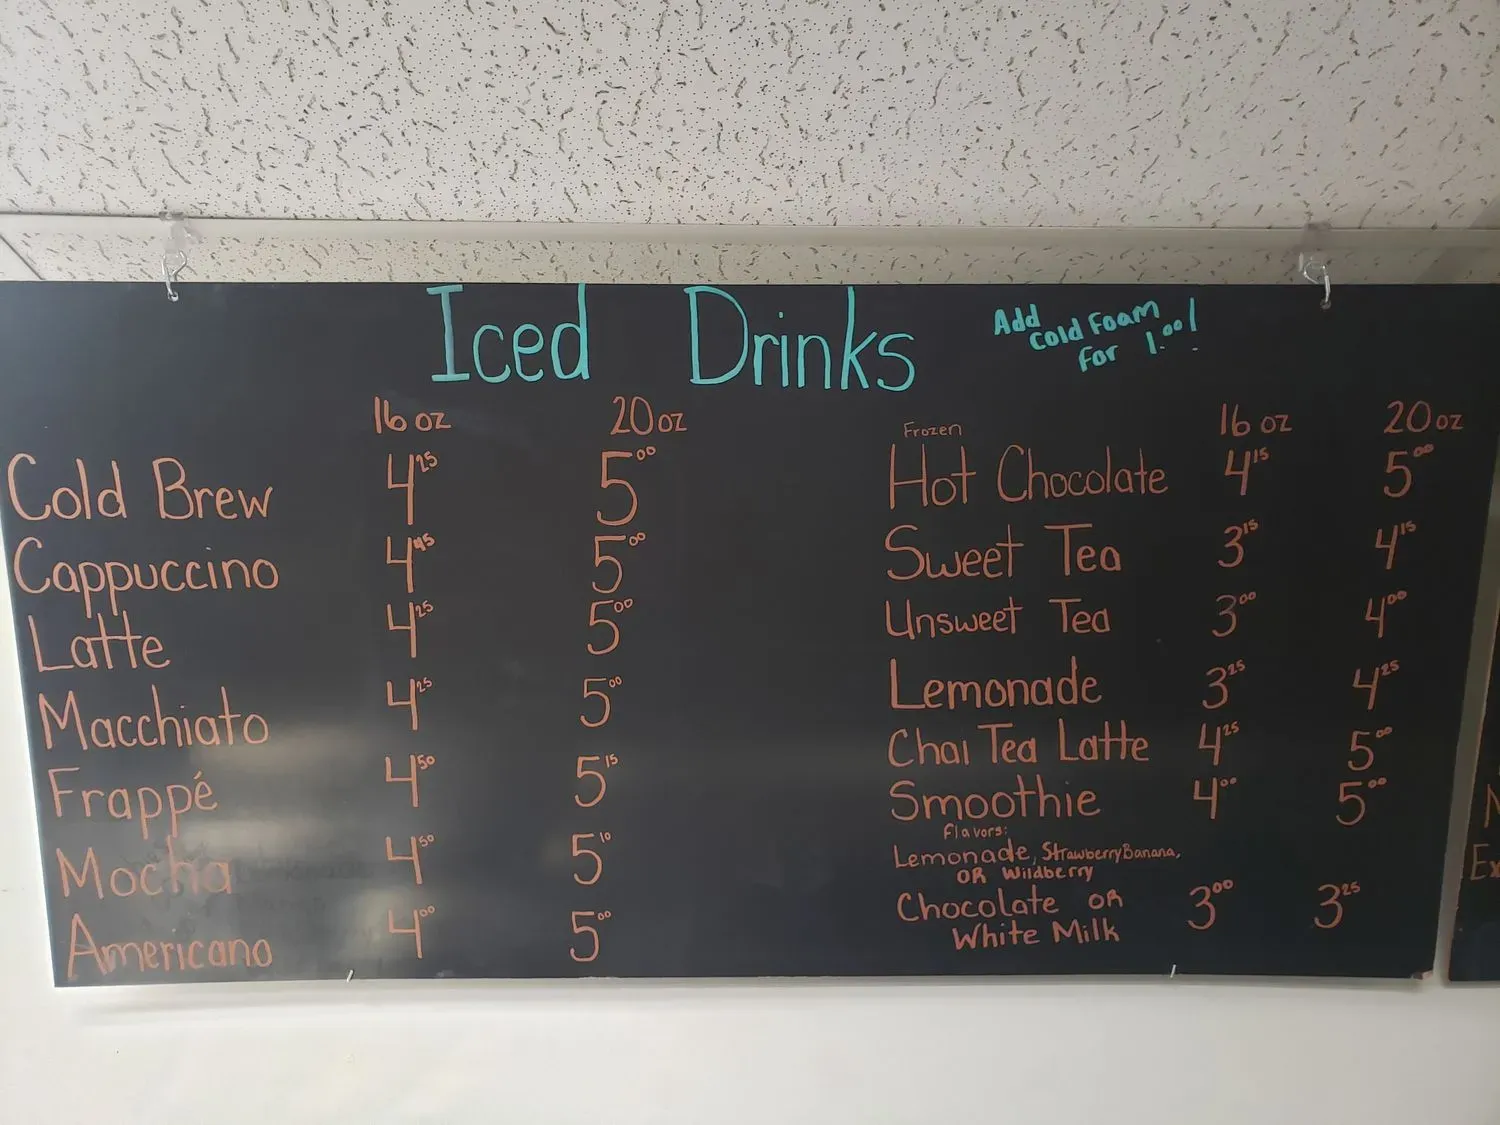 Iced Drinks
Add
Cold Foam
For 1.00!
16 oz 20 oz
Cold Brew 4.25 5.00
Cappuccino 4.45 5.00
Latte 4.25 5.00
Macchiato 4.25 5.00
Frappé 4.50 5.15
Mocha 4.50 5.10
Americano 4.00 5.00
16 oz 20 oz
Frozen
Hot Chocolate 4.15 5.00
Sweet Tea 3.15 4.15
Unsweet Tea 3.00 4.00
Lemonade 3.25 4.25
Chai Tea Latte 4.25 5.00
Smoothie 4.00 5.00
Flavors:
Lemonade, Strawberry Banana,
OR Wildberry
Chocolate OR 3.00 3.25
White Milk